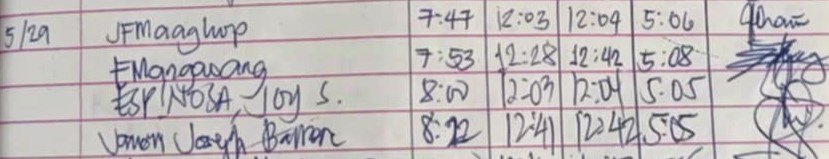 5/29 JFMaaghop 7:47 12:03 12:04 5:06
FMangapusang 7:53 12:28 12:42 5:08
ESPINOSA, Joy S. 8:00 12:03 12:04 5:05
Joseph 8:22 12:41 12:42 5:05